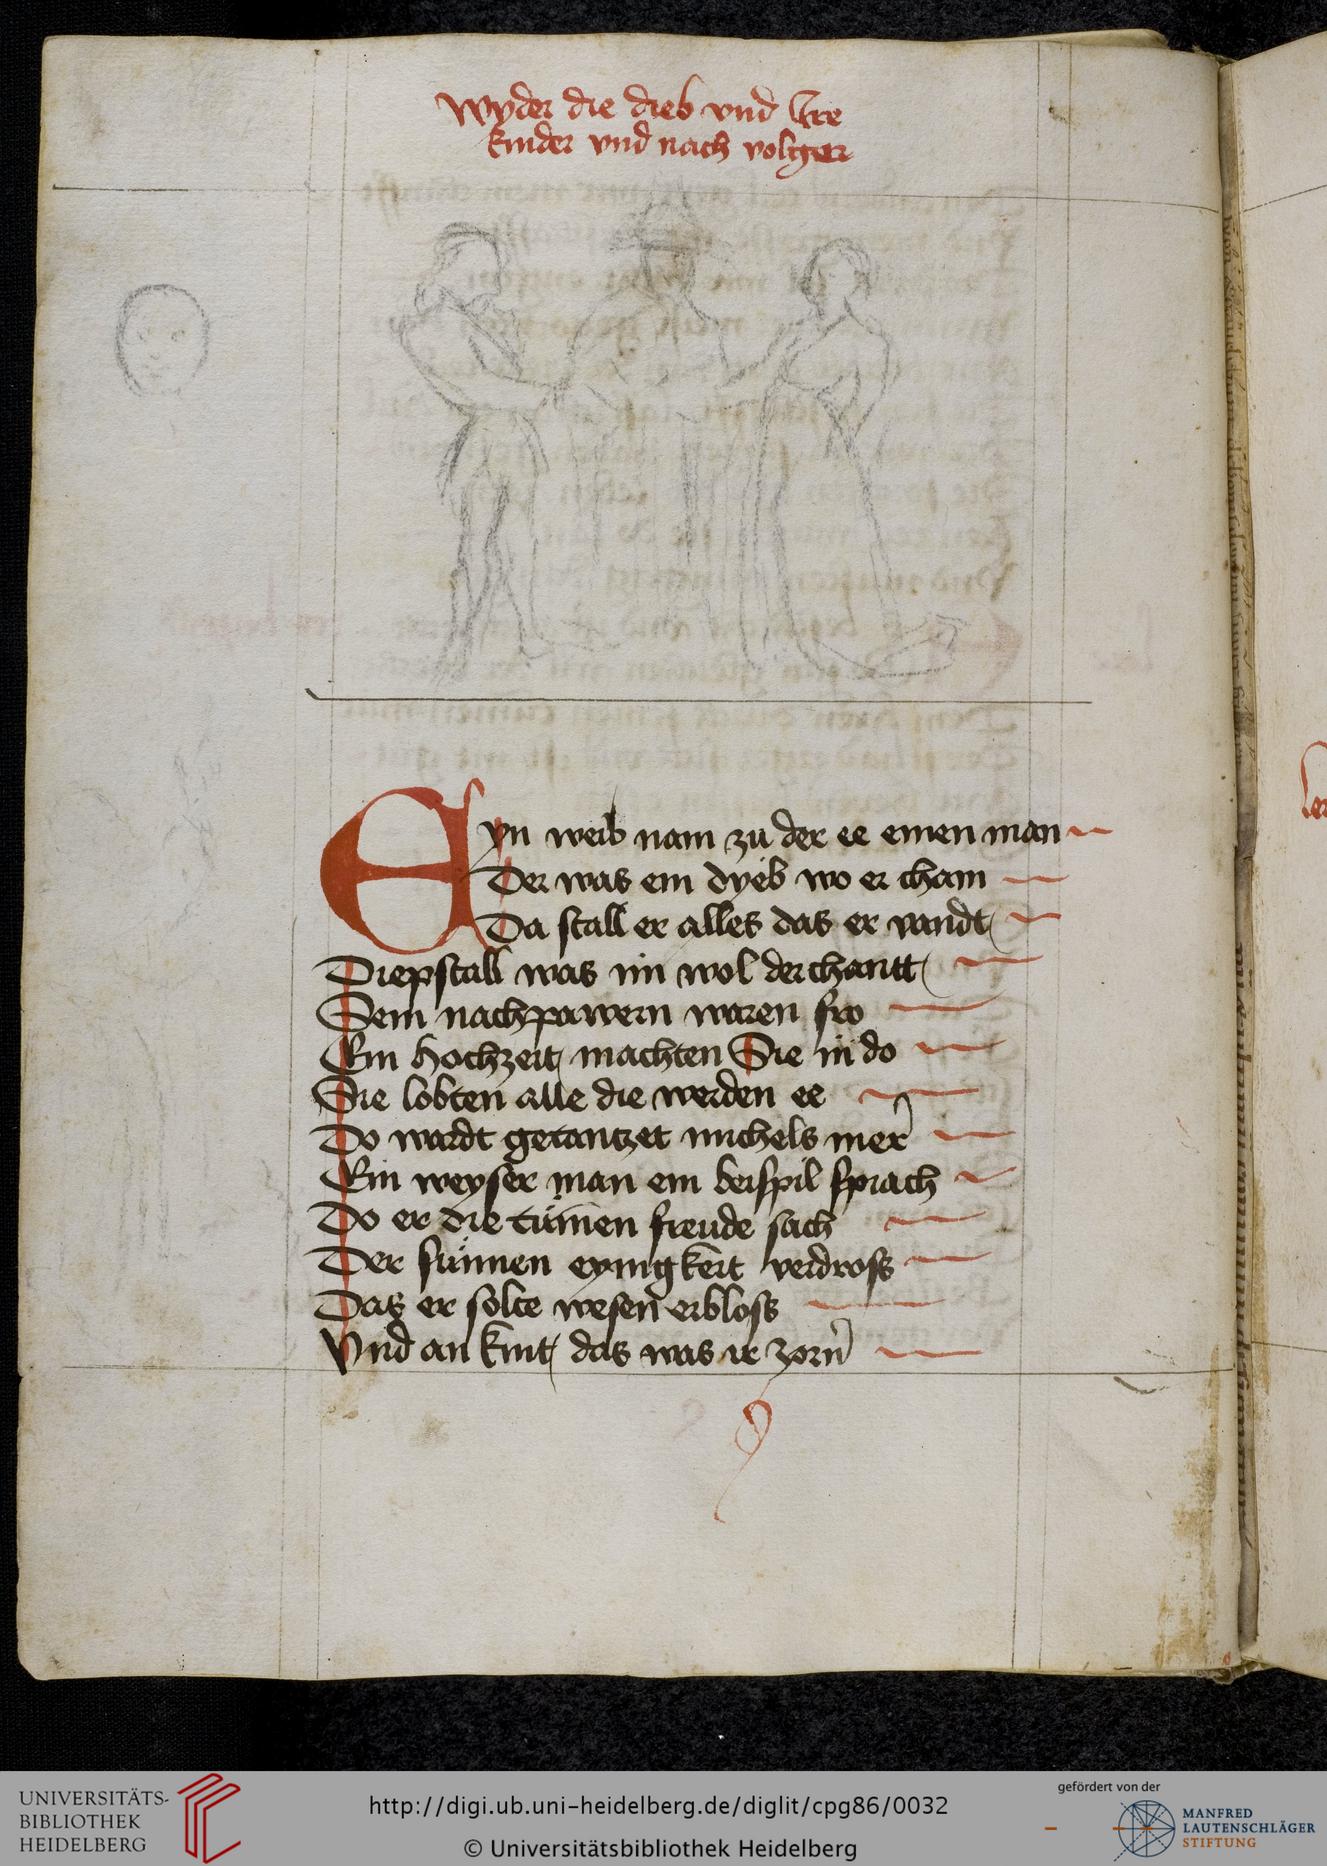 Wyder die dieb vnd Ire
kinder vnd nach volger
Eyn weib nam zu der ee einen man
Der was ein dyeb wo er cham
Da stall er alles das er vandt
Diepstall was im wol derchantt
Sein nachpawern waren fro
Ein hochzeit machten Sie in do
Sie lobten alle die werden ee
Do wardt getantzet michels mer
Ein weyser man ein beispil sprach
Do er die tümen freude sach
Der sunnen eynigkeit verdross
Das er solte wesen erbloss
Vnd an kint das was ir zorn
UNIVERSITÄTS-
BIBLIOTHEK
HEIDELBERG
http://digi.ub.uni-heidelberg.de/diglit/cpg86/0032
© Universitätsbibliothek Heidelberg
gefördert von der
MANFRED
LAUTENSCHLÄGER
STIFTUNG